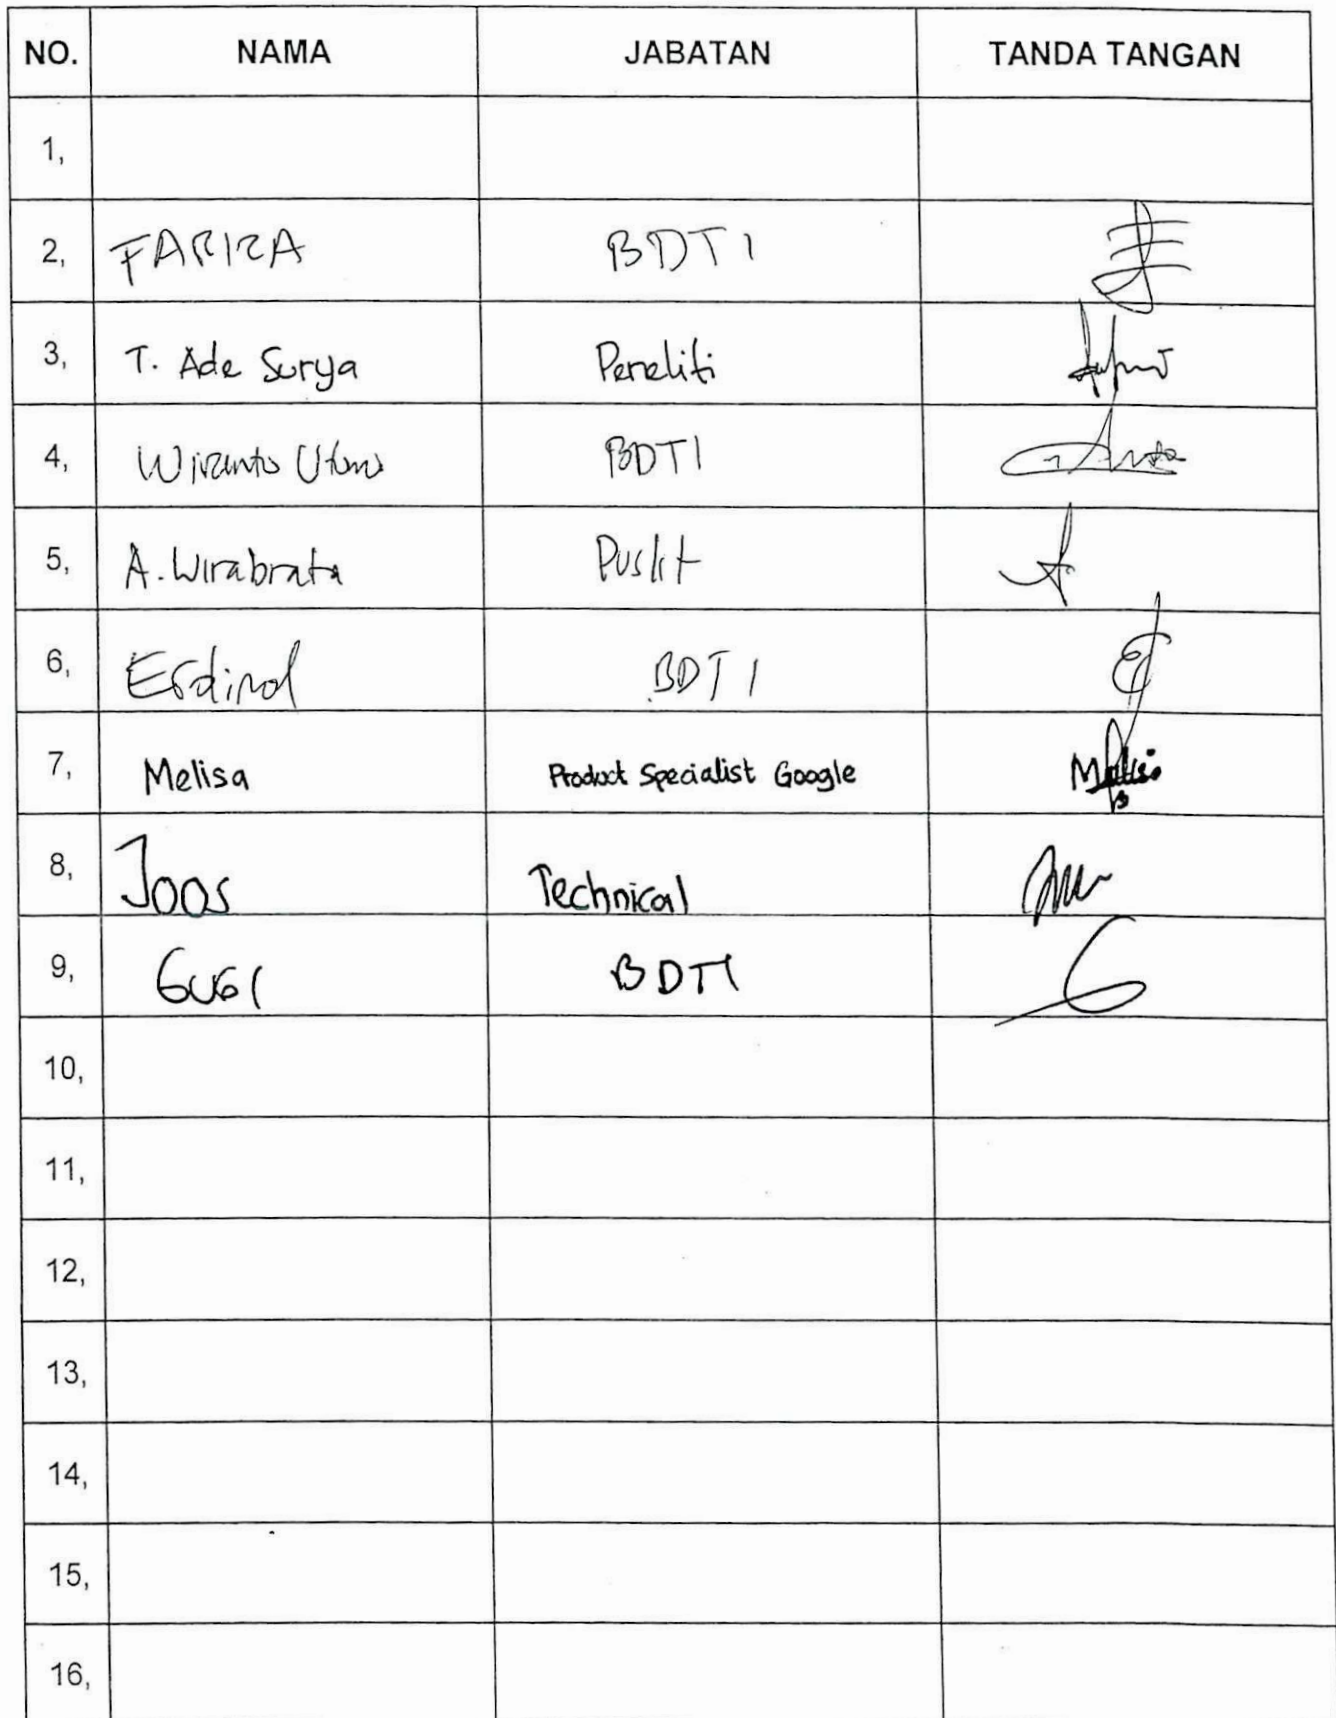 NO. NAMA JABATAN TANDA TANGAN
1,
2, FARIZA BDTI
3, T. Ade Surya Peneliti
4, Wiranto Utomo BDTI
5, A. Wirabrata Puslit
6, BDTI
7, Melisa Product Specialist Google
8, Joos Technical
9, GUGI BDTI
10,
11,
12,
13,
14,
15,
16,